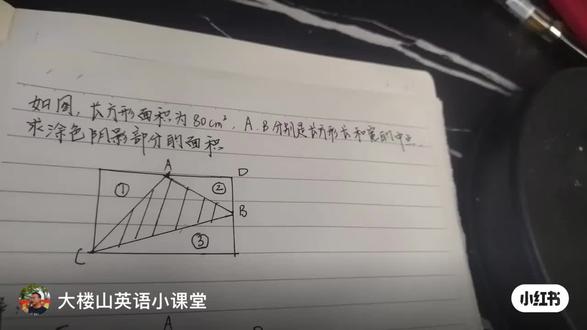 如图,长方形面积为80cm²,A.B分别是长方形长和宽的中点.
求涂色阴影部分的面积
A
D
①
②
B
③
C
大楼山英语小课堂
小红书
A